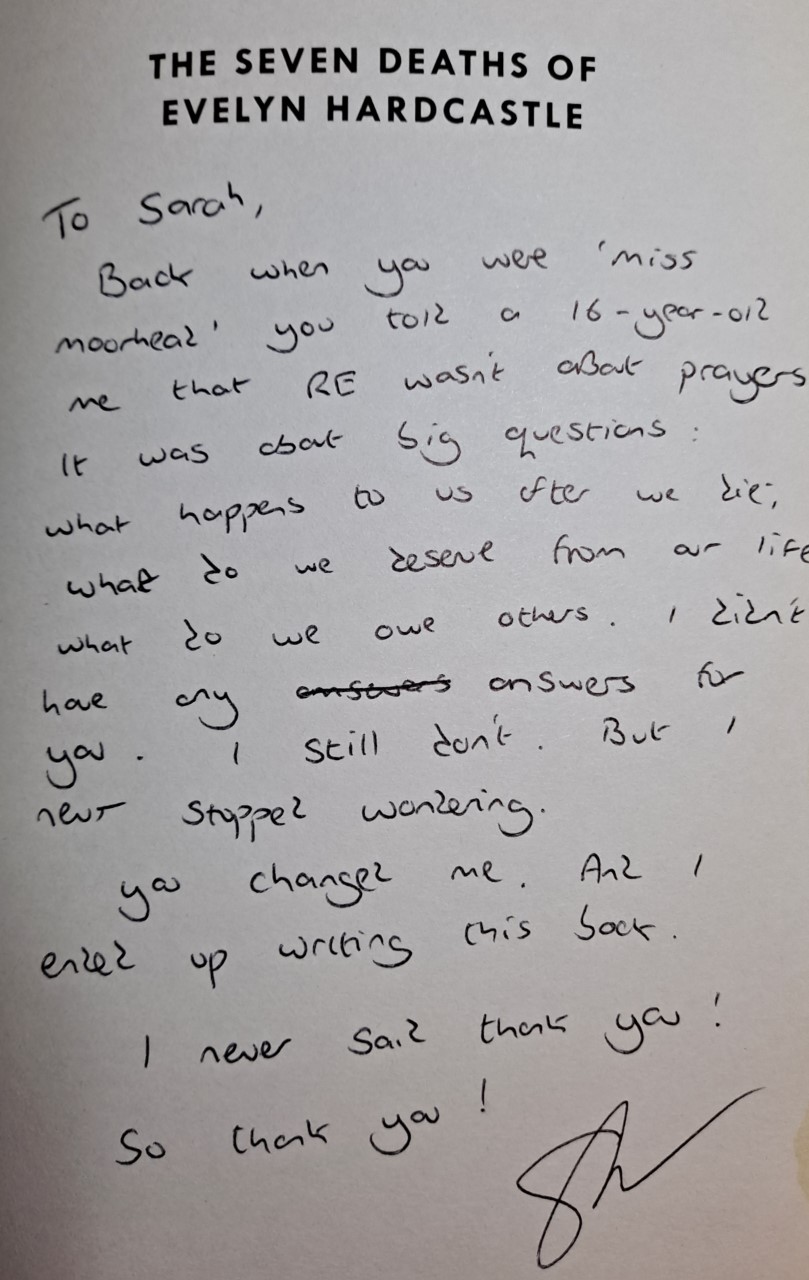 THE SEVEN DEATHS OF
EVELYN HARDCASTLE
To Sarah,
Back when you were 'miss
moorhead' you told a 16-year-old
me that RE wasn't about prayers
It was about big questions:
what happens to us after we die;
what do we deserve from our life
what do we owe others. I didn't
have any answers answers for
you. I still don't. But I
never stopped wondering.
you changed me. And I
ended up writing this book.
I never said thank you!
So thank you!